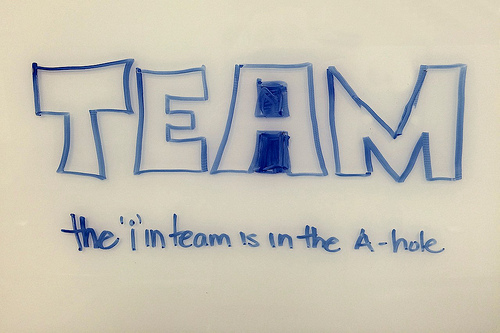 TEAM
the 'i' in team is in the A-hole